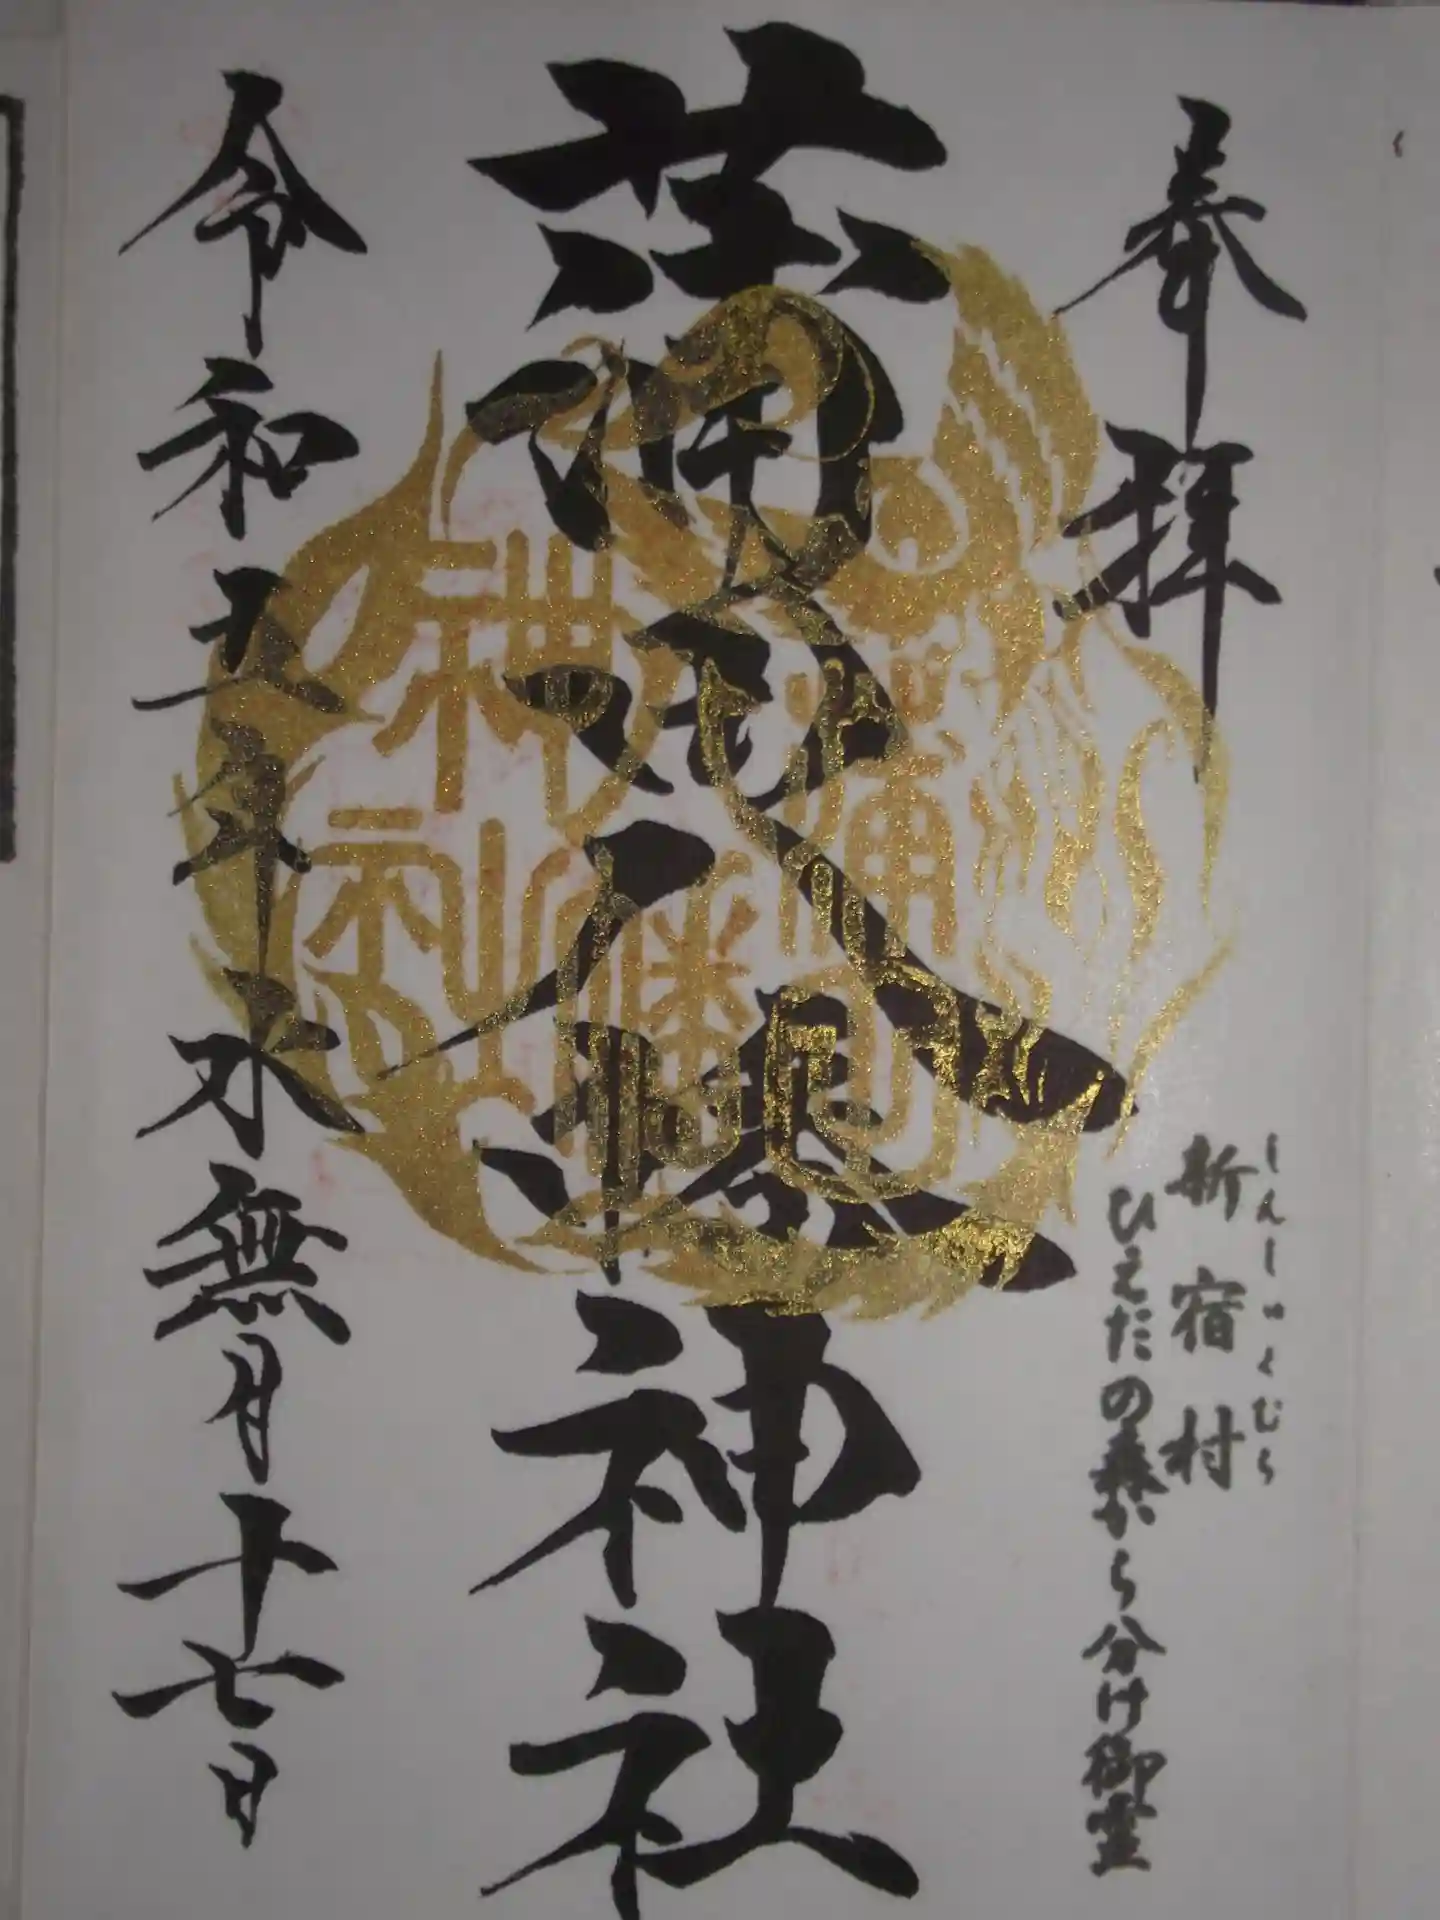 奉拝
しんしゅくむら
新宿村
ひえだの森から分け御霊
蒲田八幡神社
令和五年水無月十七日
蒲田
八幡
神社